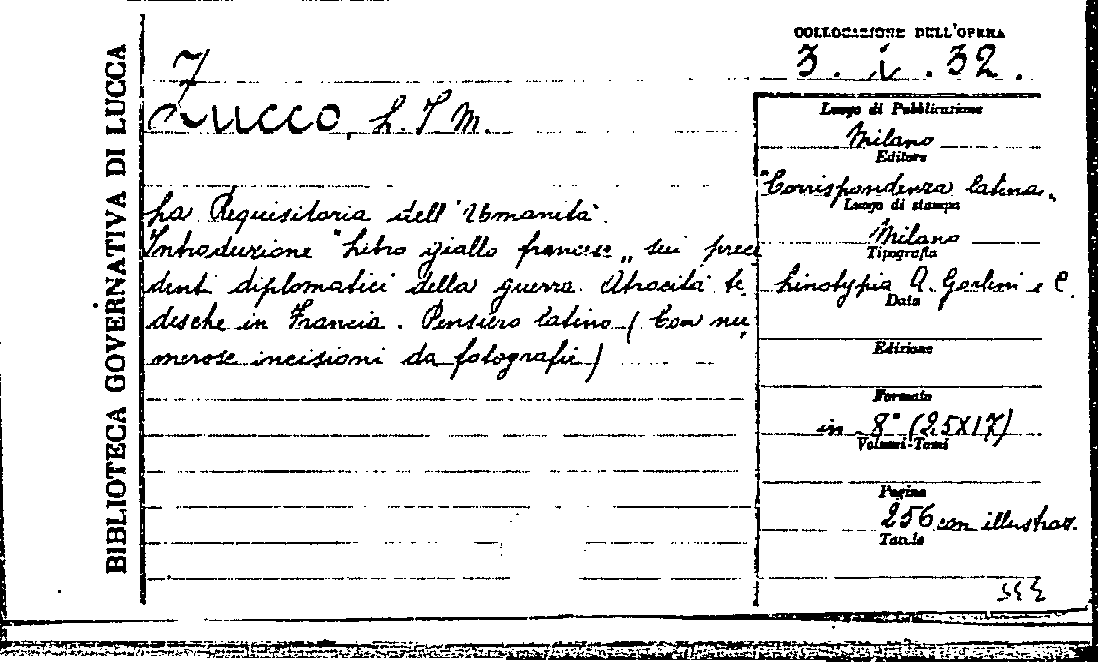 BIBLIOTECA GOVERNATIVA DI LUCCA
COLLOCAZIONE DELL'OPERA
3. i. 32.
Z
Zucco, L. T. M.
La Requisitoria dell'Umanità.
Introduzione "Libro giallo francese„ sui prece
denti diplomatici della guerra. Atrocità te
desche in Francia. Pensiero latino (Con nu,
merose incisioni da fotografie)
Luogo di Pubblicazione
Milano
Editore
"Corrispondenza latina„
Luogo di stampa
Milano
Tipografia
Linotypia A. e C.
Data
Edizione
Formato
in 8° (25X17)
Volumi-Tomi
Pagine
256 con illustraz.
Tavole